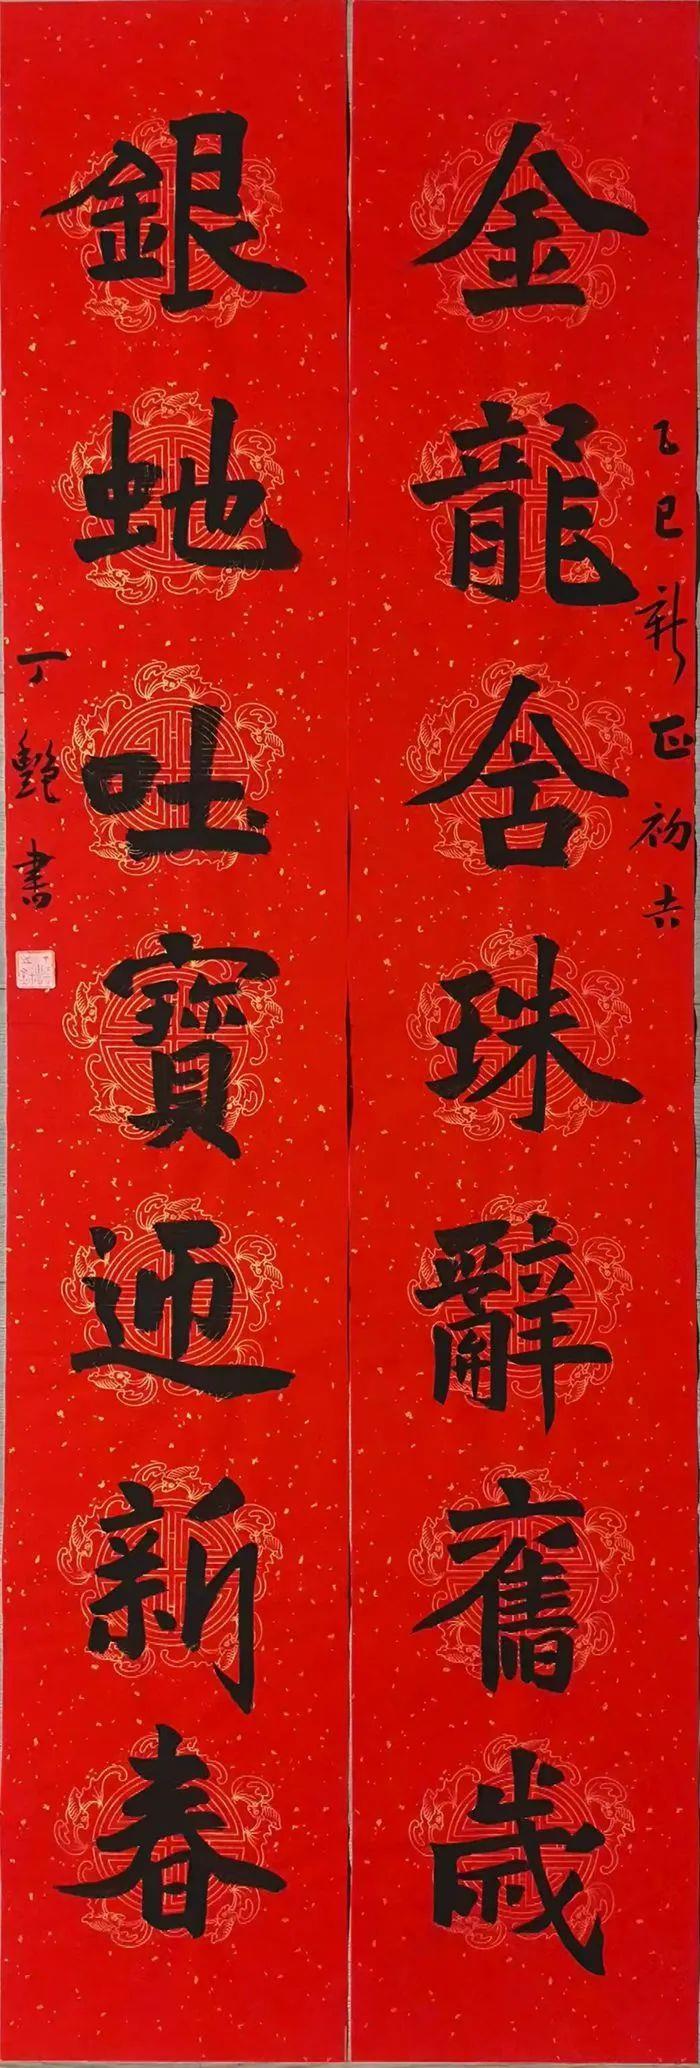 金龍含珠辭舊歲
乙巳新正初吉
銀虵吐寶迊新春
丁艷書